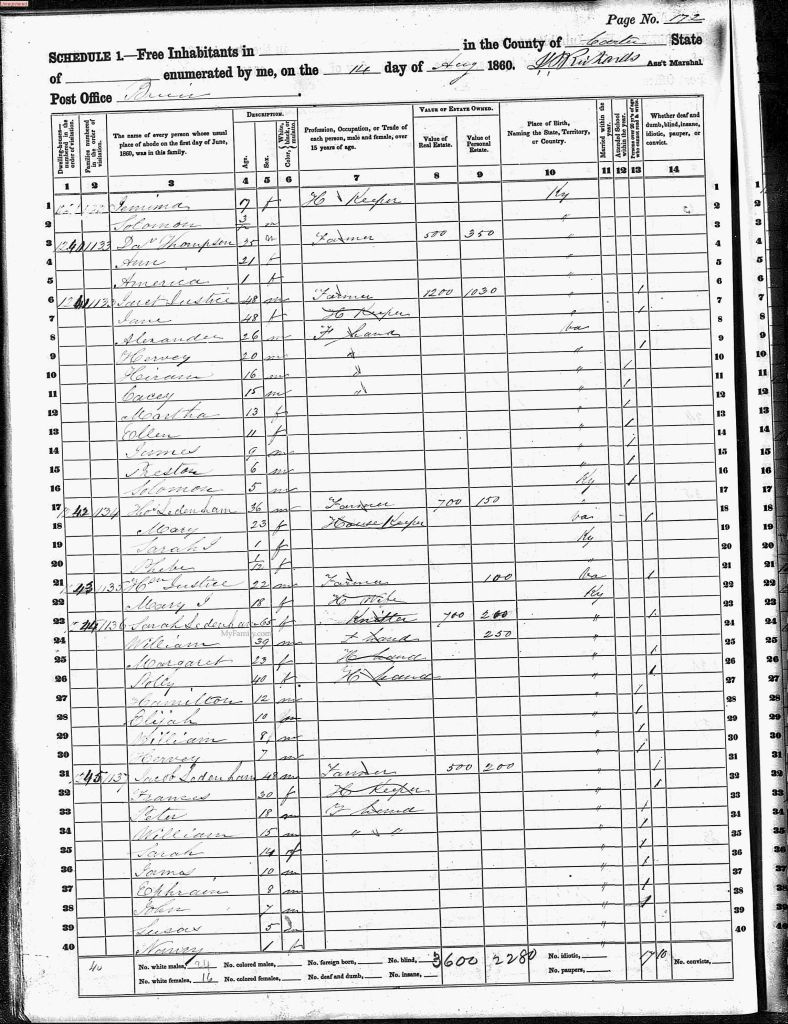 Page No. 172
SCHEDULE 1.—Free Inhabitants in in the County of Carter State
of enumerated by me, on the 14 day of Aug 1860. Ass't Marshal.
Post Office
DESCRIPTION. VALUE OF ESTATE OWNED.
Dwelling-houses—numbered in the order of visitation. Families numbered in the order of visitation. The name of every person whose usual place of abode on the first day of June, 1860, was in this family. Age. Sex. Color, White, black, or mulatto. Profession, Occupation, or Trade of each person, male and female, over 15 years of age. Value of Real Estate. Value of Personal Estate. Place of Birth, Naming the State, Territory, or Country. Married within the year. Attended School within the year. Persons over 20 y'rs of age who cannot read & write. Whether deaf and dumb, blind, insane, idiotic, pauper, or convict.
1 2 3 4 5 6 7 8 9 10 11 12 13 14
1 Jemima 7 f H Keeper Ky 1
2 Solomon m " 2
3 1133 Thompson 35 m Farmer 500 350 " 3
4 Ann 21 f " 4
5 America 1 f " 5
6 Justice 48 m Farmer 1200 1030 " 1 6
7 Jane 48 f H Keeper " 1 7
8 Alexander 26 m F hand va 8
9 Hervey 20 m " " 1 9
10 Hiram 16 m " " 1 10
11 15 m " " 1 11
12 Martha 13 f " 1 12
13 Ellen 11 f " 1 13
14 James 9 m " 1 14
15 Preston 6 m " 1 15
16 Solomon 5 m Ky 1 16
17 42 1134 Thos Ledenham 36 m Farmer 700 150 " 17
18 Mary 23 f House Keeper va 1 18
19 Sarah J 1 f Ky 19
20 Phebe 1/12 f " 20
21 43 1135 Wm Justice 22 m Farmer 100 Va 1 21
22 Mary J 18 f H Wife Ky 22
23 44 1136 Sarah Ledenham 65 f Knitter 700 200 " 1 23
24 William 39 m F hand 250 " 24
25 Margaret 23 f H hand " 1 25
26 Polly 40 f H hand " 1 26
27 Hamilton 12 m " 1 27
28 Elijah 10 m " 1 28
29 William 8 m " 1 29
30 Hervey 7 m " 1 30
31 45 1137 Jacob Ledenham 48 m Farmer 500 200 " 1 31
32 Frances 30 f H Keeper " 1 32
33 Peter 18 m F hand " 1 33
34 William 15 m " " " " 1 34
35 Sarah 14 f " 1 35
36 James 10 m " 1 36
37 Ephraim 8 m " 1 37
38 John 7 m " 1 38
39 5 " 39
40 1 f " 40
MyFamily.com
40 No. white males, 24 No. colored males, No. foreign born, No. blind, 3600 2280 No. idiotic, 17 10 No. convicts,
No. white females, 16 No. colored females, No. deaf and dumb, No. insane, No. paupers,